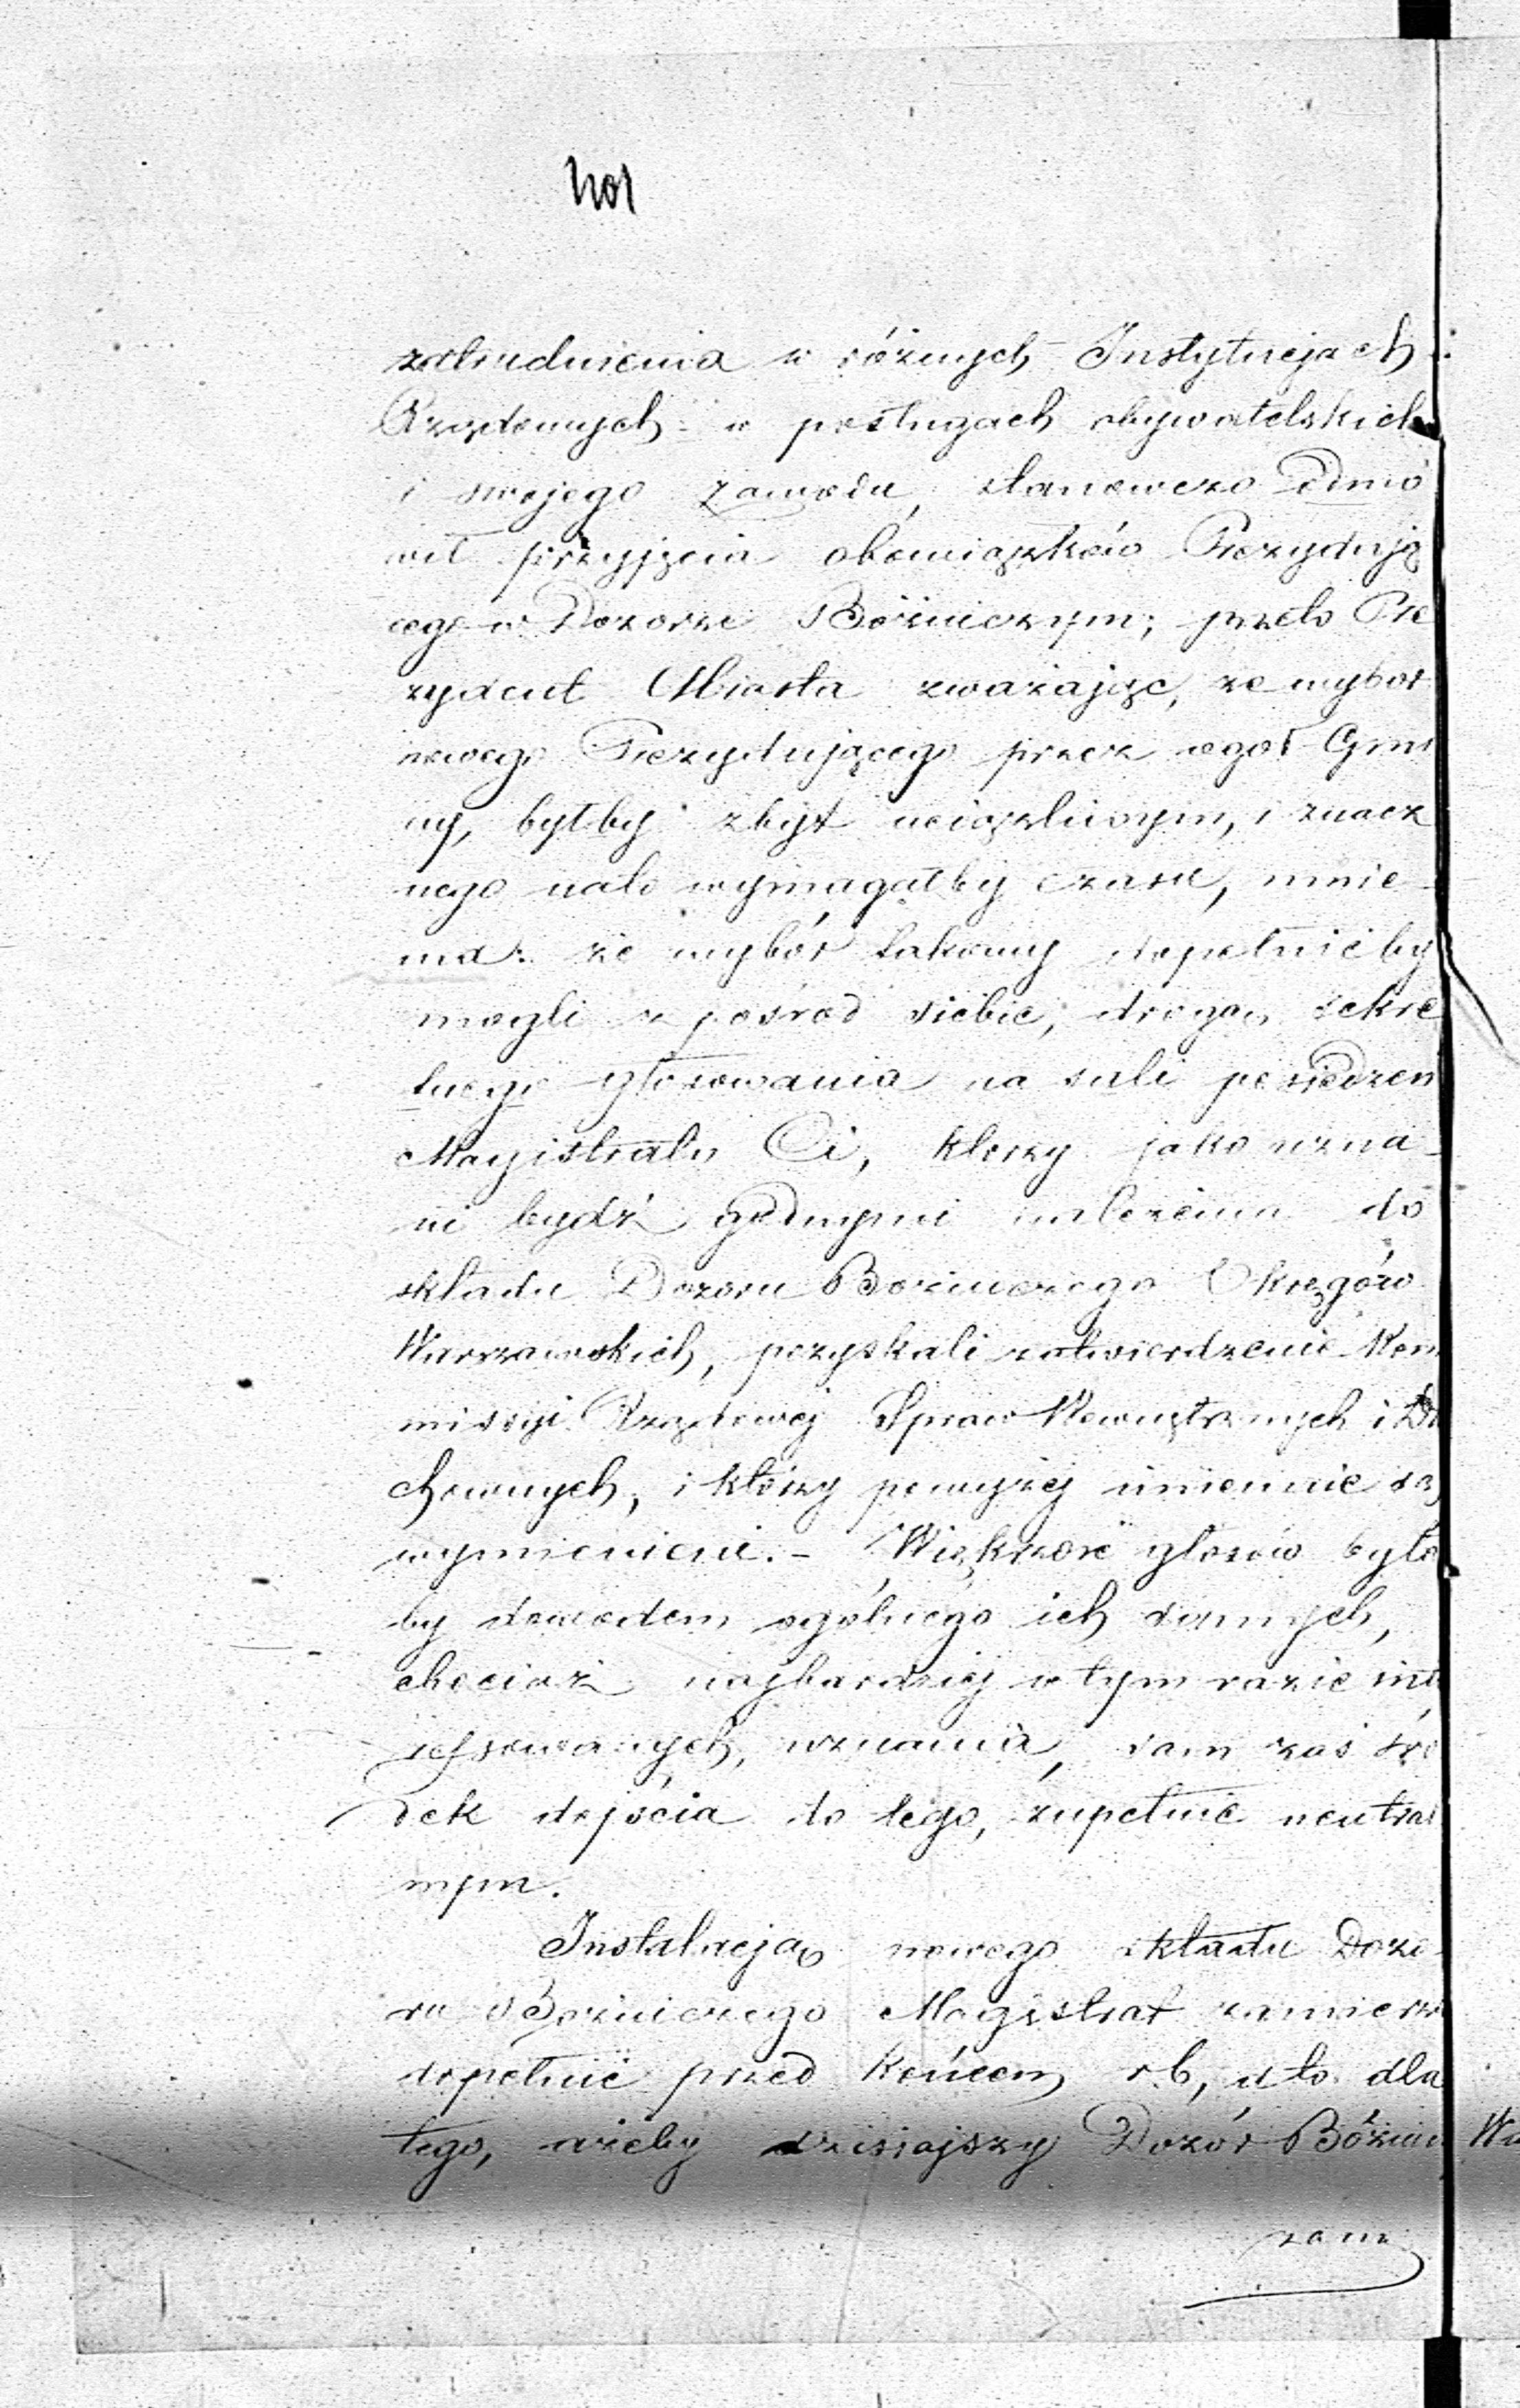 401
zatrudnienia w różnych Instytucjach
Rządowych w posługach obywatelskich
i swojego zawodu, stanowczo odmó
wił przyjęcia obowiązków Prezydują
cego w Dozorze Bóżniczym; przeto Pre
zydent Miasta zważając, że wybor
nowego Prezydującego przez ogół Gmi
ny, byłby zbyt uciążliwym, i znacz
nego nato wymagałby czasu, mnie
ma: że wybór takowy dopełnić by
mogli z pośród siebie, drogą sekre
tnego głosowania na sali posiedzeń
Magistratu Ci, którzy jako uzna-
ni bydź godnymi należenia do
składu Dozoru Bożniczego Okręgów
Warszawskich, pozyskali zatwierdzenie Kom
missyi Rządowej Spraw Wewnętrznych i Du
chownych, i którzy powyżej imiennie są
wymienieni. – Większość głosów była
by dowodem ogólnego ich samych,
chociaż najbardziej w tym razie inte
ressowanych, uznania, sam zaś śro
dek dojścia do tego, zupełnie neutral
nym.
Instalacją nowego składu Dozo-
ru Bożniczego Magistrat zamierza
dopełnić przed końcem r.b, a to dla
tego, ażeby dzisiejszy Dozór Bóżni
zam